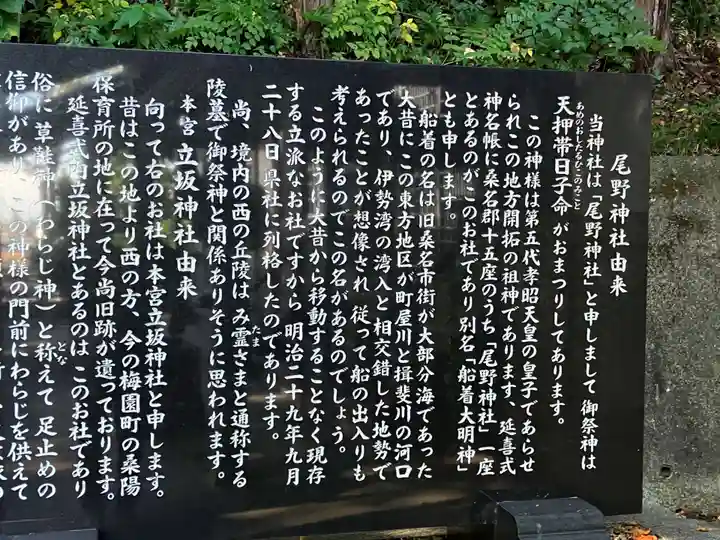 尾野神社由来
当神社は「尾野神社」と申しまして御祭神は
あめのおしたるひこのみこと
天押帯日子命がおまつりしてあります。
この神様は第五代孝昭天皇の皇子であらせ
られこの地方開拓の祖神であります、延喜式
神名帳に桑名郡十五座のうち「尾野神社」一座
とあるのがこのお社であり別名「船着大明神」
とも申します。
船着の名は旧桑名市街が大部分海であった
大昔にこの東方地区が町屋川と揖斐川の河口
であり、伊勢湾の湾入と相交錯した地勢で
あったことが想像され従って船の出入りも
考えられるのでこの名があるのでしょう。
このように大昔から移動することなく現存
する立派なお社ですから明治二十九年九月
二十八日県社に列格したのであります。
尚、境内の西の丘陵はみ霊さまと通称する
たま
陵墓で御祭神と関係ありそうに思われます。
本宮立坂神社由来
向って右のお社は本宮立坂神社と申します。
昔はこの地より西の方、今の梅園町の桑陽
保育所の地に在って今尚旧跡が遺っております。
延喜式内立坂神社とあるのはこのお社であり
俗に草鞋神(わらじ神)と称えて足止めの
とな
信仰があり、この神様の門前にわらじを供えて